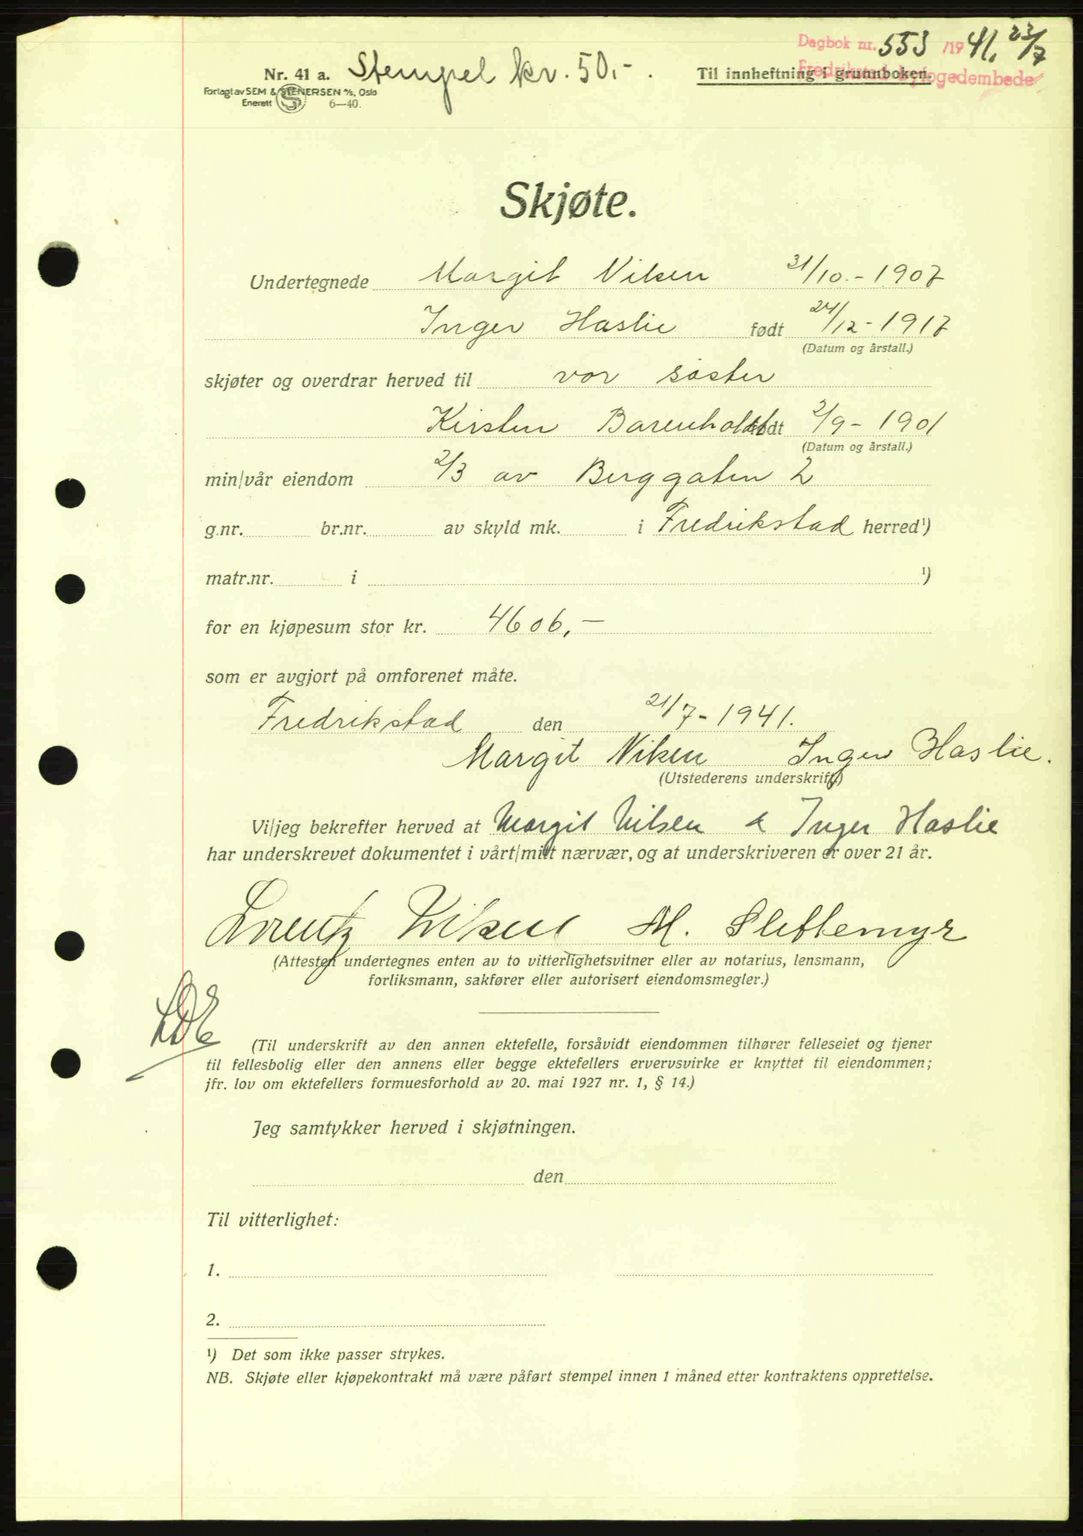 Dagbok nr. 553 /19 41, 23/7
Nr. 41 a. Stempel kr. 50,- . Til innheftning i grunnboken.
Fredrikstad byfogedembede
Forlagt av SEM & STENERSEN A/S, Oslo
Enerett S 6—40.
Skjøte.
Undertegnede Margit Nilsen 31/10.-1907
Inger Haslie født 24/12-1917
(Datum og årstall.)
skjøter og overdrar herved til vor søster
Kirsten Barenholdt født 2/9-1901
(Datum og årstall.)
min/vår eiendom 2/3 av Berggaten 2
g.nr. br.nr. av skyld mk. i Fredrikstad herred¹)
matr.nr. i ¹)
for en kjøpesum stor kr. 4606,-
som er avgjort på omforenet måte.
Fredrikstad den 21/7-1941.
Margit Nilsen Inger Haslie.
(Utstederens underskrift)
Vi/jeg bekrefter herved at Margit Nilsen & Inger Haslie
har underskrevet dokumentet i vårt/mitt nærvær, og at underskriveren er over 21 år.
Lorentz Nilsen M. Slettemyr
(Attesten undertegnes enten av to vitterlighetsvitner eller av notarius, lensmann,
forliksmann, sakfører eller autorisert eiendomsmegler.)
(Til underskrift av den annen ektefelle, forsåvidt eiendommen tilhører felleseiet og tjener
til fellesbolig eller den annens eller begge ektefellers ervervsvirke er knyttet til eiendommen;
jfr. lov om ektefellers formuesforhold av 20. mai 1927 nr. 1, § 14.)
Jeg samtykker herved i skjøtningen.
den
Til vitterlighet:
1.
2.
¹) Det som ikke passer strykes.
NB. Skjøte eller kjøpekontrakt må være påført stempel innen 1 måned etter kontraktens opprettelse.